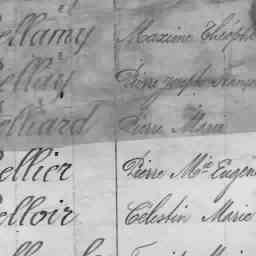 ellamy Maxime Théoph
ellay Pierre Joseph François
elliard Pierre Marie
ellier Pierre Mie Eugèn
elloir Célestin Marie